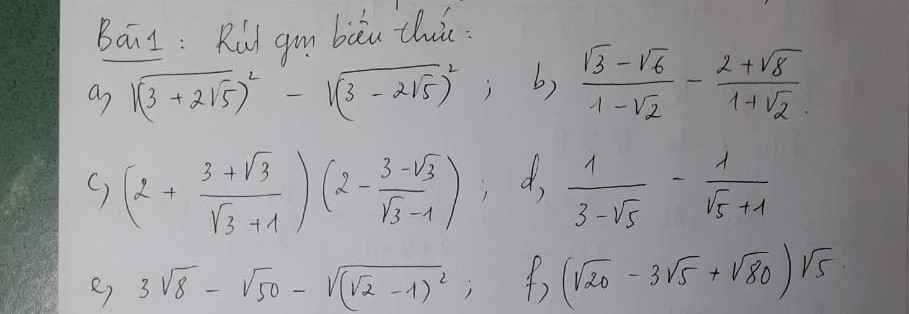 Bài 1 : Rút gọn biểu thức:
a, √(3 + 2√5)² - √(3 - 2√5)² ; b, (√3 - √6)/(1 - √2) - (2 + √8)/(1 + √2).
c, (2 + (3 + √3)/(√3 + 1)) (2 - (3 - √3)/(√3 - 1)) ; d, 1/(3 - √5) - 1/(√5 + 1)
e, 3√8 - √50 - √(√2 - 1)² ; f, (√20 - 3√5 + √80)√5.